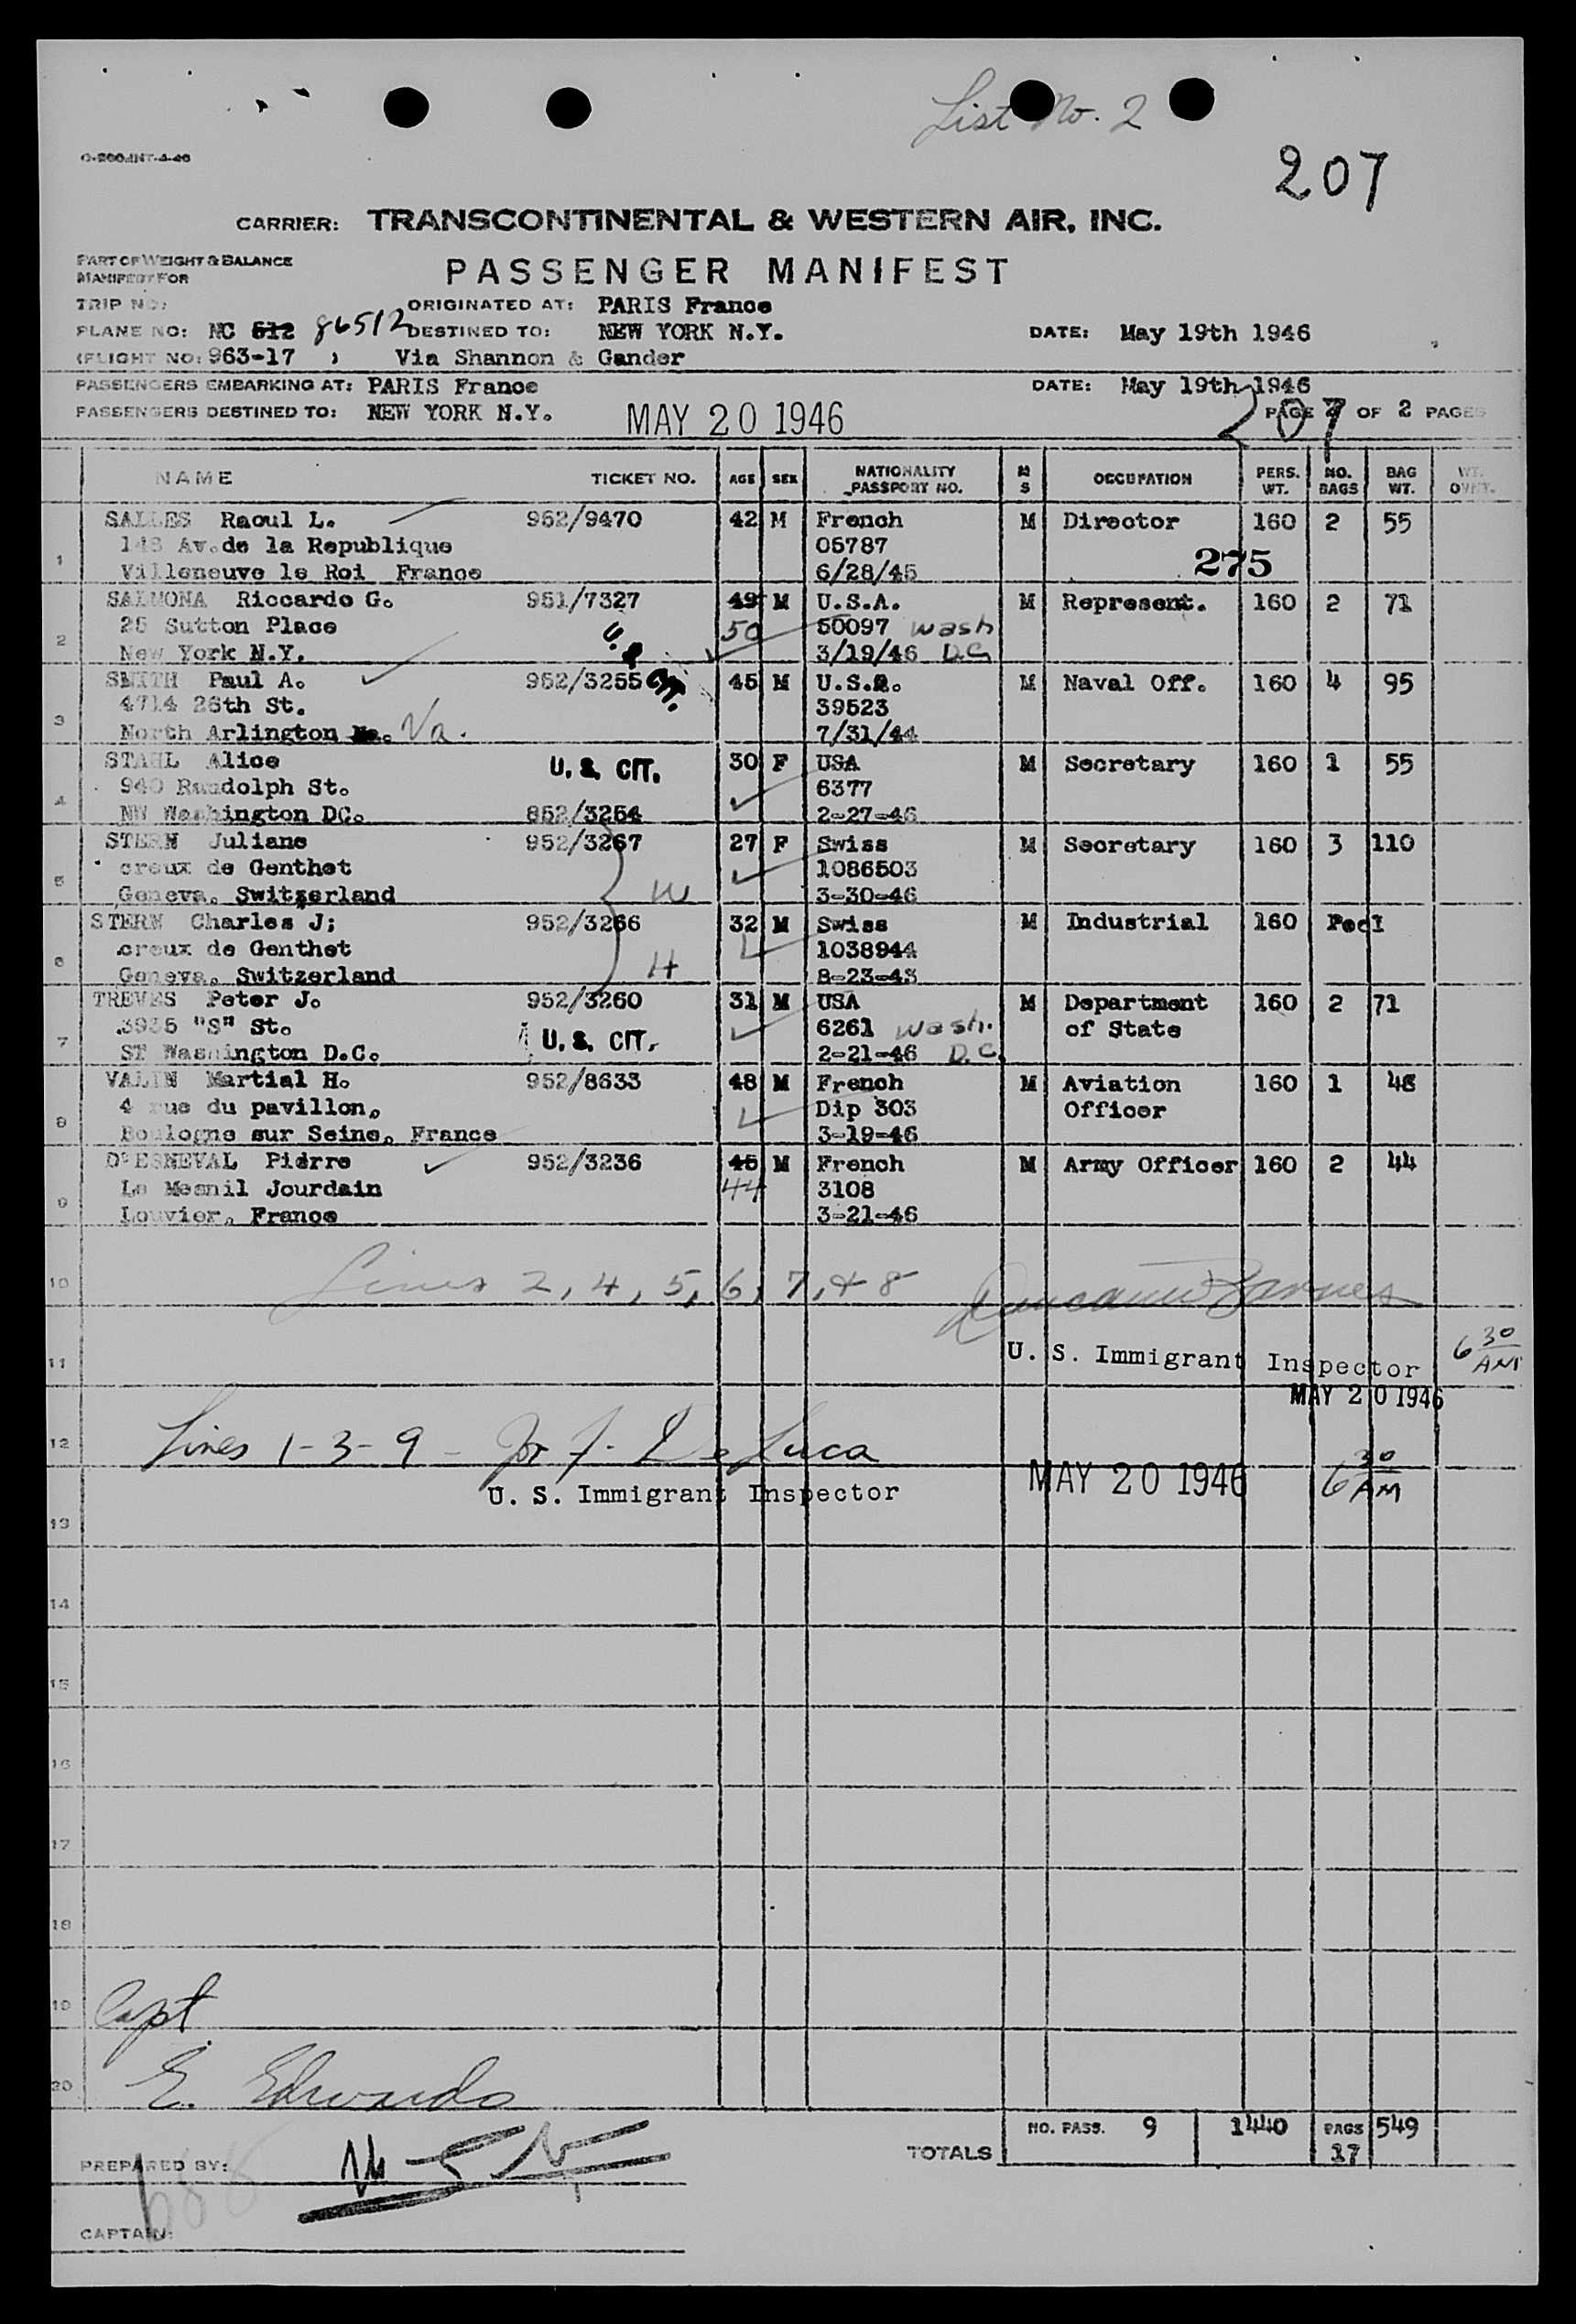 List No. 2
207
O-200-INT-4-46
CARRIER: TRANSCONTINENTAL & WESTERN AIR, INC.
PART OF WEIGHT & BALANCE
MANIFEST FOR
PASSENGER MANIFEST
TRIP NO: ORIGINATED AT: PARIS France
PLANE NO: NC 512 86512 DESTINED TO: NEW YORK N.Y. DATE: May 19th 1946
(FLIGHT NO: 963-17 ) Via Shannon & Gander
PASSENGERS EMBARKING AT: PARIS France DATE: May 19th 1946
PASSENGERS DESTINED TO: NEW YORK N.Y. MAY 20 1946 PAGE 2 OF 2 PAGES
207
NAME TICKET NO. AGE SEX NATIONALITY PASSPORT NO. M S OCCUPATION PERS. WT. NO. BAGS BAG WT. WT. OVNT.
1 SALLES Raoul L. 952/9470 42 M French M Director 160 2 55
148 Av.de la Republique 05787
Villeneuve le Roi France 6/28/45 275
2 SALMONA Riccardo G. 951/7327 49 M U.S.A. M Represent. 160 2 71
25 Sutton Place 50 50097 Wash
New York N.Y. U. S. CIT. 3/19/46 D.C.
3 SMITH Paul A. 952/3255 45 M U.S.A. M Naval Off. 160 4 95
4714 26th St. 39523
North Arlington Va. 7/31/44
4 STAHL Alice U. S. CIT. 30 F USA M Secretary 160 1 55
940 Randolph St. 6377
NW Washington DC. 852/3254 2-27-46
5 STERN Juliane 952/3267 27 F Swiss M Secretary 160 3 110
creux de Genthet 1086503
Geneva, Switzerland W 3-30-46
6 STERN Charles J; 952/3266 32 M Swiss M Industrial 160 Pool
creux de Genthet 1038944
Geneva, Switzerland H 8-23-43
7 TREVES Peter J. 952/3260 31 M USA M Department 160 2 71
3935 "S" St. U. S. CIT. 6261 Wash. of State
ST Washington D.C. 2-21-46 D.C.
8 VALIN Martial H. 952/8633 48 M French M Aviation 160 1 48
4 rue du pavillon, Dip 303 Officer
Boulogne sur Seine, France 3-19-46
9 D'ESNEVAL Pierre 952/3236 45 M French M Army Officer 160 2 44
Le Mesnil Jourdain 44 3108
Louvier, France 3-21-46
10 Lines 2, 4, 5, 6, 7, & 8
11 U. S. Immigrant Inspector 6 30 AM
MAY 20 1946
12 Lines 1-3-9 - De Luca
U. S. Immigrant Inspector MAY 20 1946 6 30 AM
13
14
15
16
17
18
19 Capt.
20 E. Edwards
TOTALS NO. PASS. 9 1440 BAGS 17 549
PREPARED BY:
CAPTAIN: